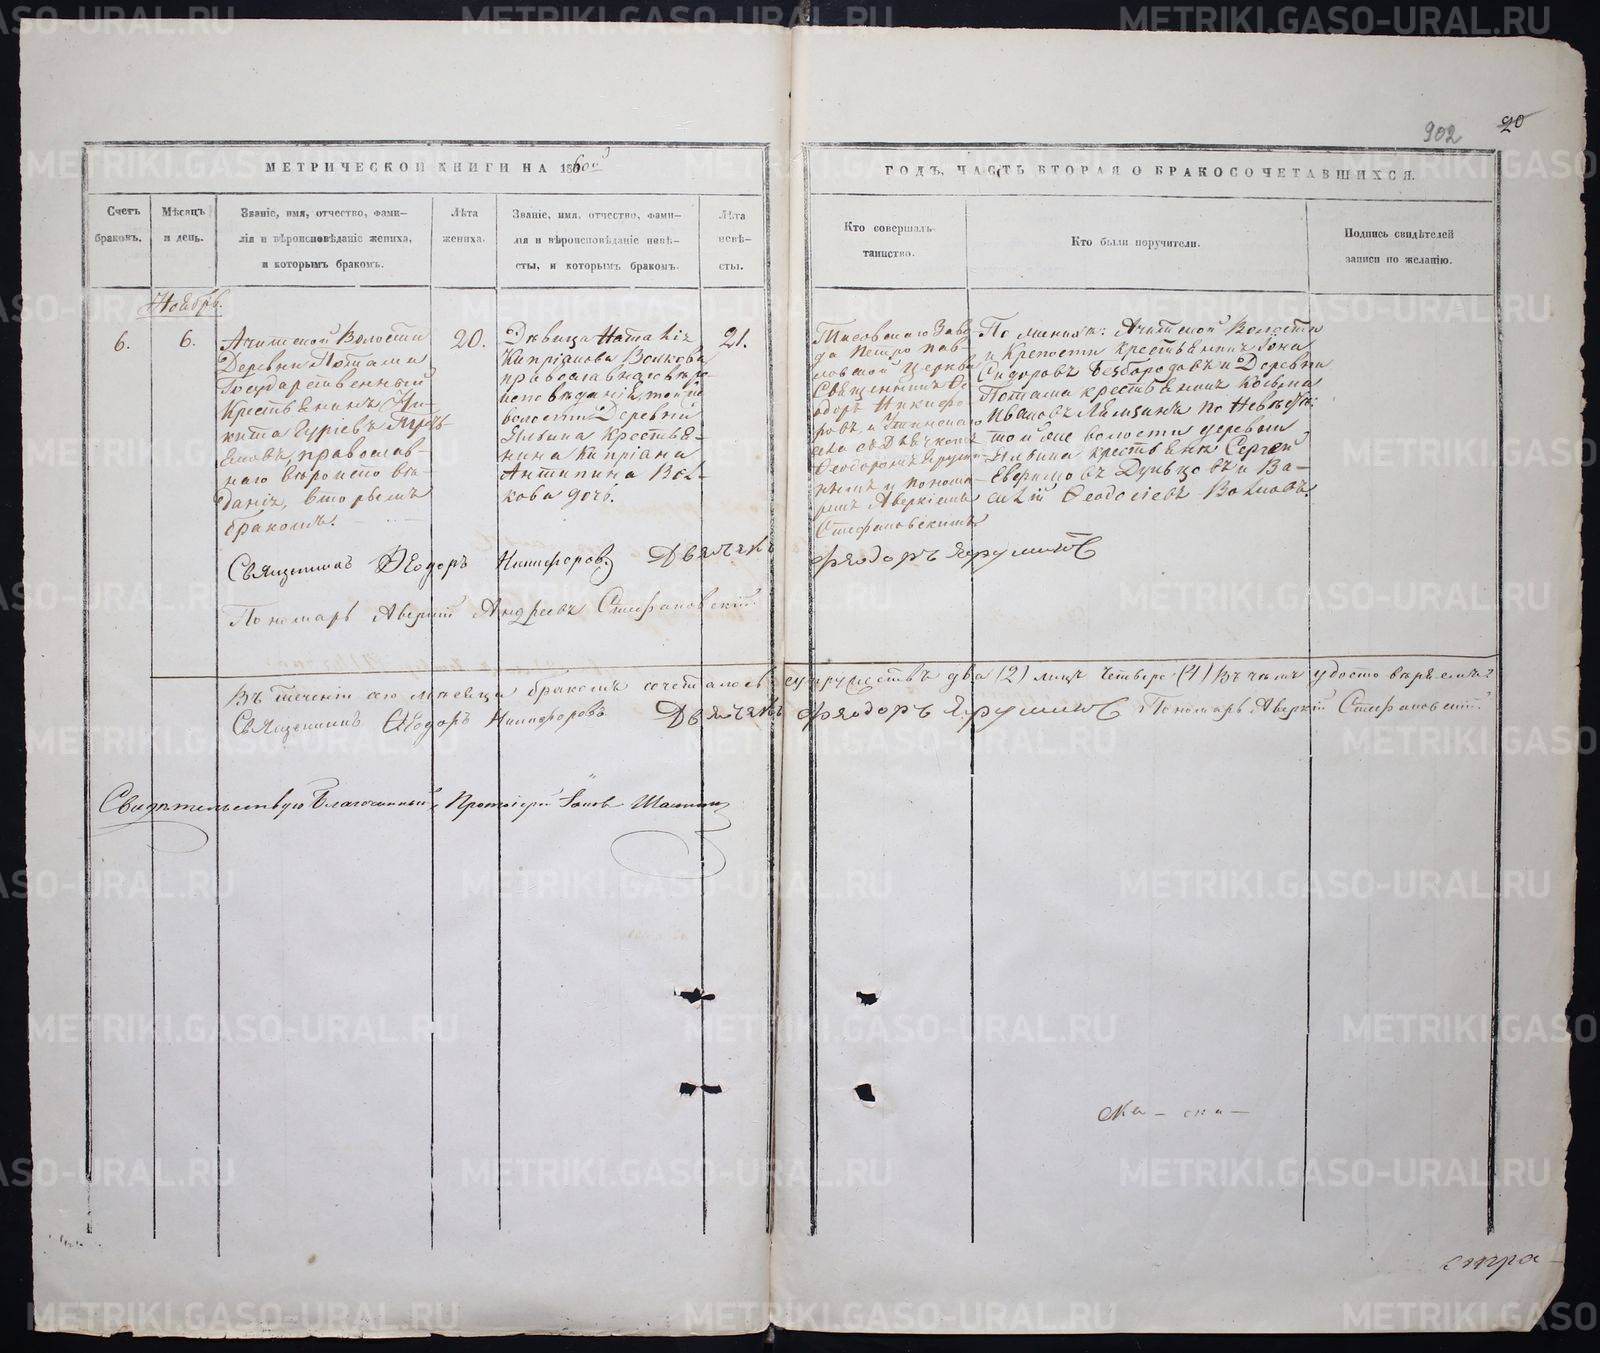 902
20
МЕТРИЧЕСКОЙ КНИГИ НА 1860й
ГОДЪ, ЧАСТЬ ВТОРАЯ О БРАКОСОЧЕТАВШИХСЯ.
Счетъ
браковъ.
Мѣсяцъ
и день.
Званіе, имя, отчество, фами-
лія и вѣроисповѣданіе жениха,
и которымъ бракомъ.
Лѣта
жениха.
Званіе, имя, отчество, фами-
лія и вѣроисповѣданіе невѣ-
сты, и которымъ бракомъ.
Лѣта
невѣ-
сты.
Кто совершалъ
таинство.
Кто были поручители.
Подпись свидѣтелей
записи по желанію.
Ноябрь.
6.
6.
Ачитской Волости
Деревни Потама
Государственный
Крестьянинъ Ни-
кита Гурьевъ
православ-
наго вѣроисповѣ-
данія, вторымъ
бракомъ.
20.
Дѣвица Наталія
Кипріанова Волкова
православнаго вѣро
исповѣданія, той же
волости Деревни
Ялыма Крестья-
нина Кипріана
Антипина Вол-
кова дочь.
21.
Заво-
да Петро пав-
ловской церкви
Священникъ Ѳе-
одоръ Никифо-
ровъ
Ѳеодоромъ
и понома-
ремъ Аверкіемъ
Стефановскимъ
По женихѣ: Ачитской Волости
и Крепости крестьянинъ Іона
Сидоровъ Безбородовъ и Деревни
Потама крестьянинъ Козьма
Ивановъ по Невѣстѣ:
той же волости деревни
Ялыма крестьяне Сергей
Евфимовъ и Ва-
силій Ѳеодосіевъ Волковъ.
Священникъ Ѳеодоръ Никифоровъ Дьячекъ Феодоръ
Пономарь Аверкій Андреевъ Стефановскій.
Въ теченіи сего мѣсяца бракомъ сочеталось супружествъ два (2) лицъ четверо (4) въ чемъ и удостовѣряемъ:
Священникъ Ѳеодоръ Никифоровъ Дьячекъ Феодоръ Пономарь Аверкій Стефановскій.
Свидѣтельствую Благочинный, Протоіерей
стра-
METRIKI.GASO-URAL.RU